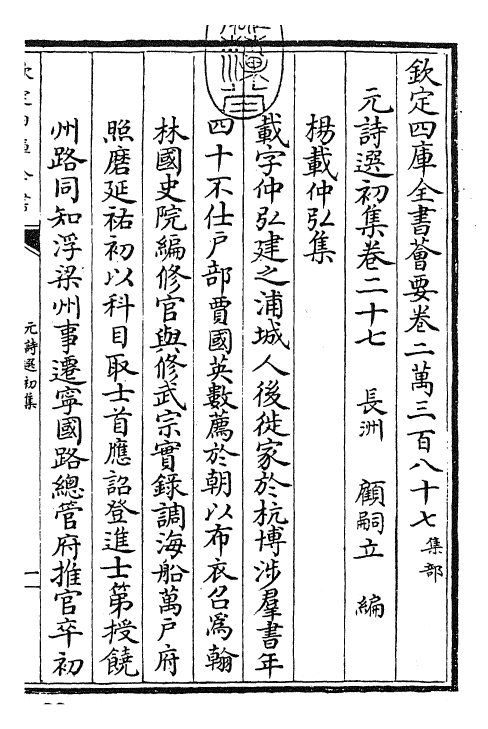 欽定四庫全書薈要卷二萬三百八十七集部
元詩選初集卷二十七　長洲　顧嗣立　編
楊載仲弘集
載字仲弘建之浦城人後徙家於杭博涉羣書年
四十不仕戶部賈國英數薦於朝以布衣召爲翰
林國史院編修官與修武宗實錄調海船萬戶府
照磨延祐初以科目取士首應詔登進士第授饒
州路同知浮梁州事遷寧國路總管府推官卒初
元詩選初集
一